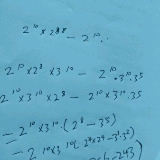 2¹⁰ × 2⁸⁸ − 2¹⁰..
2¹⁰ × 2⁸ × 3¹⁰ − 2¹⁰ · 3¹⁰ · 35
2¹⁰ × 3¹⁰ × 2⁸ − 2¹⁰ × 3¹⁰ · 35
= 2¹⁰ × 3¹⁰ · (2⁸ − 35)
= 2¹⁰ × 3¹⁰ (2⁴ × 2⁴ − 3³ · 3²)
− 243)